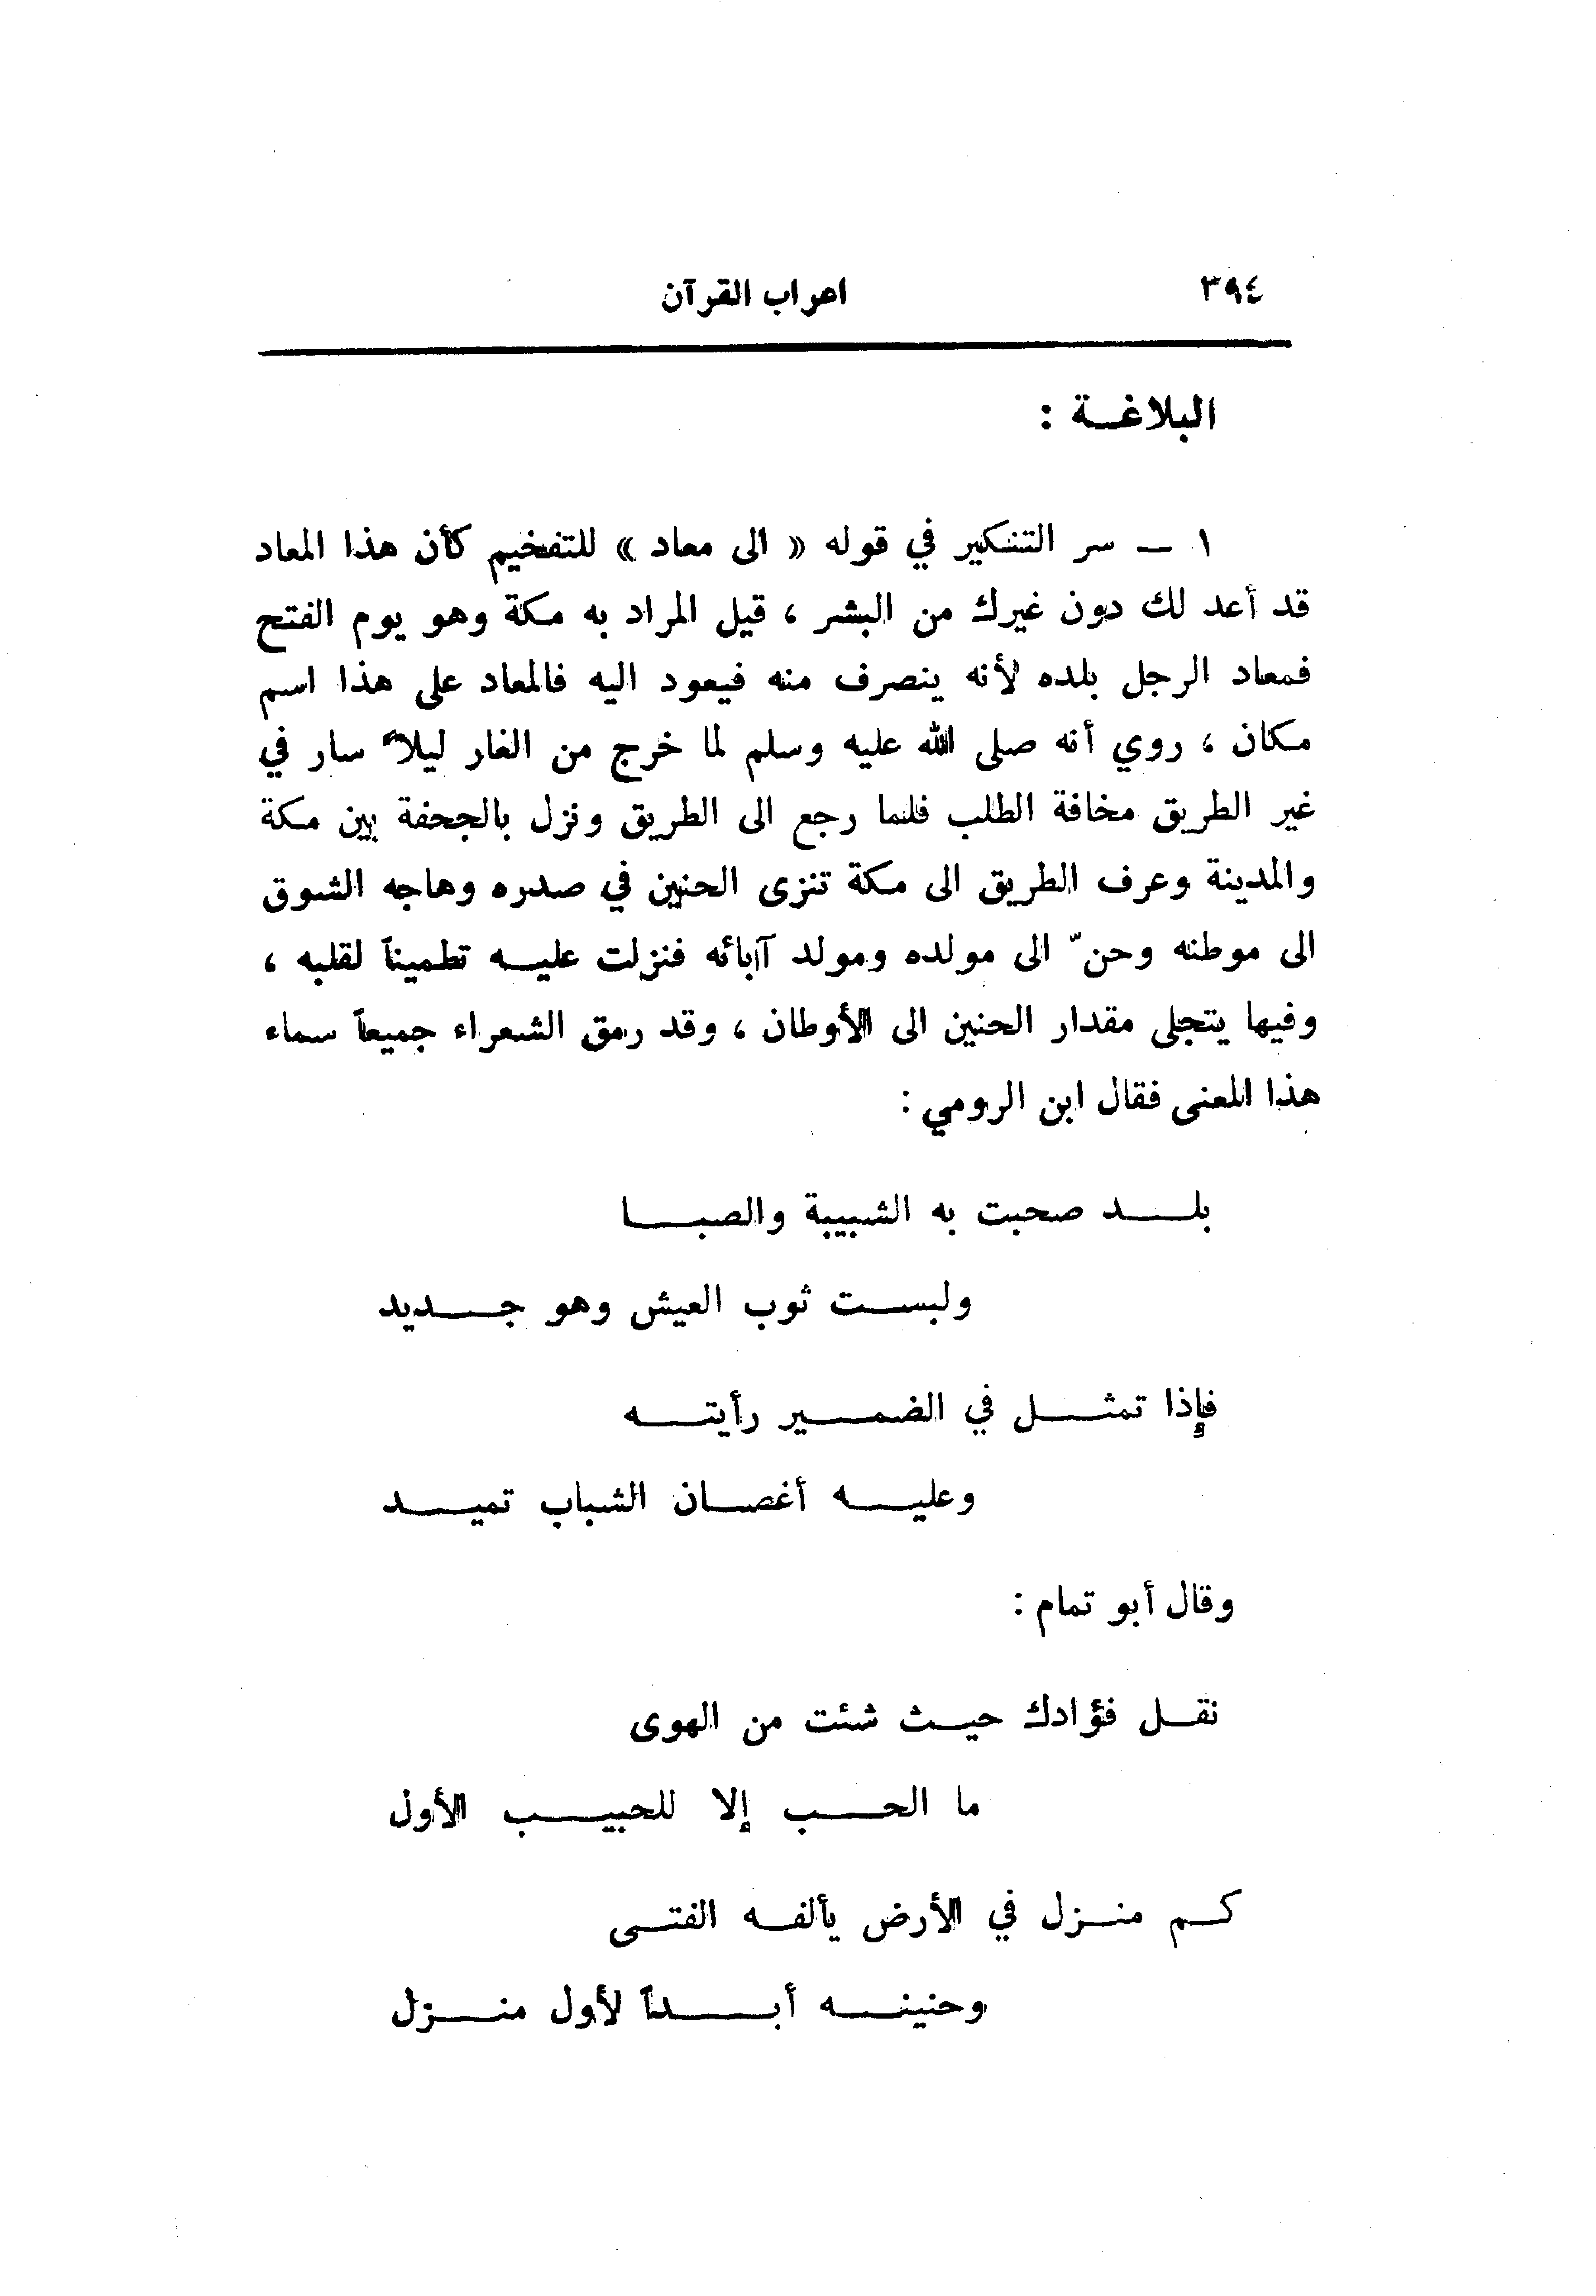 ٣٩٤
اعراب القرآن
البلاغة :
١ ـ سر التنكير في قوله « الى معاد » للتفخيم كأن هذا المعاد
قد أعد لك دون غيرك من البشر ، قيل المراد به مكة وهو يوم الفتح
فمعاد الرجل بلده لأنه ينصرف منه فيعود اليه فالمعاد على هذا اسم
مكان ، روي أنه صلى الله عليه وسلم لما خرج من الغار ليلاً سار في
غير الطريق مخافة الطلب فلما رجع الى الطريق ونزل بالجحفة بين مكة
والمدينة وعرف الطريق الى مكة تنزى الحنين في صدره وهاجه الشوق
الى موطنه وحنّ الى مولده ومولد آبائه فنزلت عليه تطميناً لقلبه ،
وفيها يتجلى مقدار الحنين الى الأوطان ، وقد رمق الشعراء جميعاً سماء
هذا المعنى فقال ابن الرومي :
بلد صحبت به الشبيبة والصبا
ولبست ثوب العيش وهو جديد
فإذا تمثل في الضمير رأيته
وعليه أغصان الشباب تميد
وقال أبو تمام :
نقل فؤادك حيث شئت من الهوى
ما الحب إلا للحبيب الأول
كم منزل في الأرض يألفه الفتى
وحنينه أبداً لأول منزل